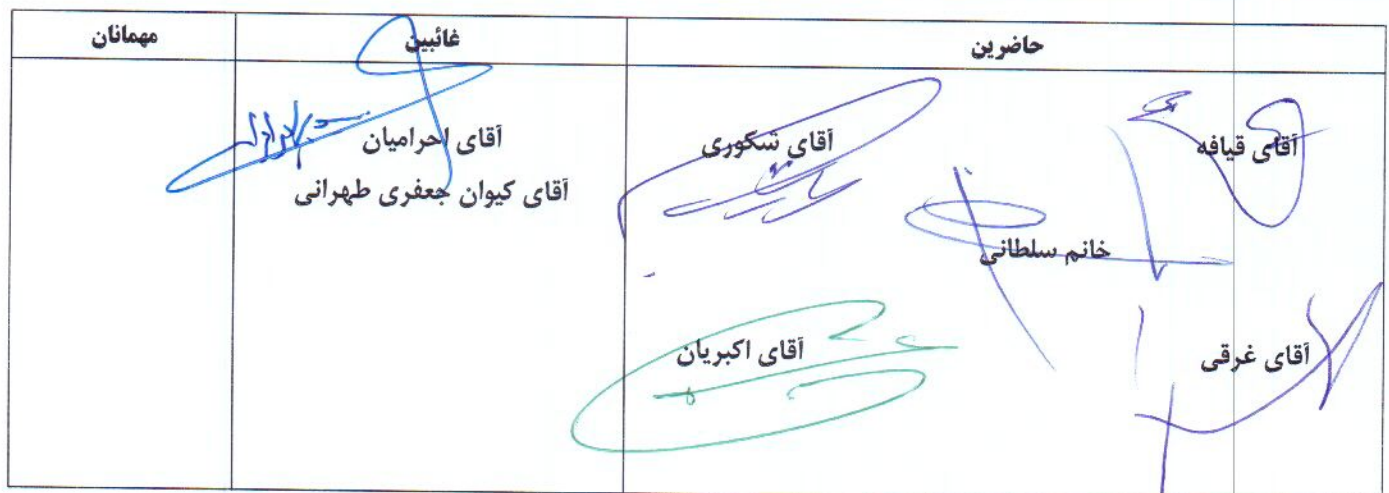 حاضرین
غائبین
مهمانان
آقای قیافه
آقای شکوری
خانم سلطانی
آقای غرقی
آقای اکبریان
آقای احرامیان
آقای کیوان جعفری طهرانی